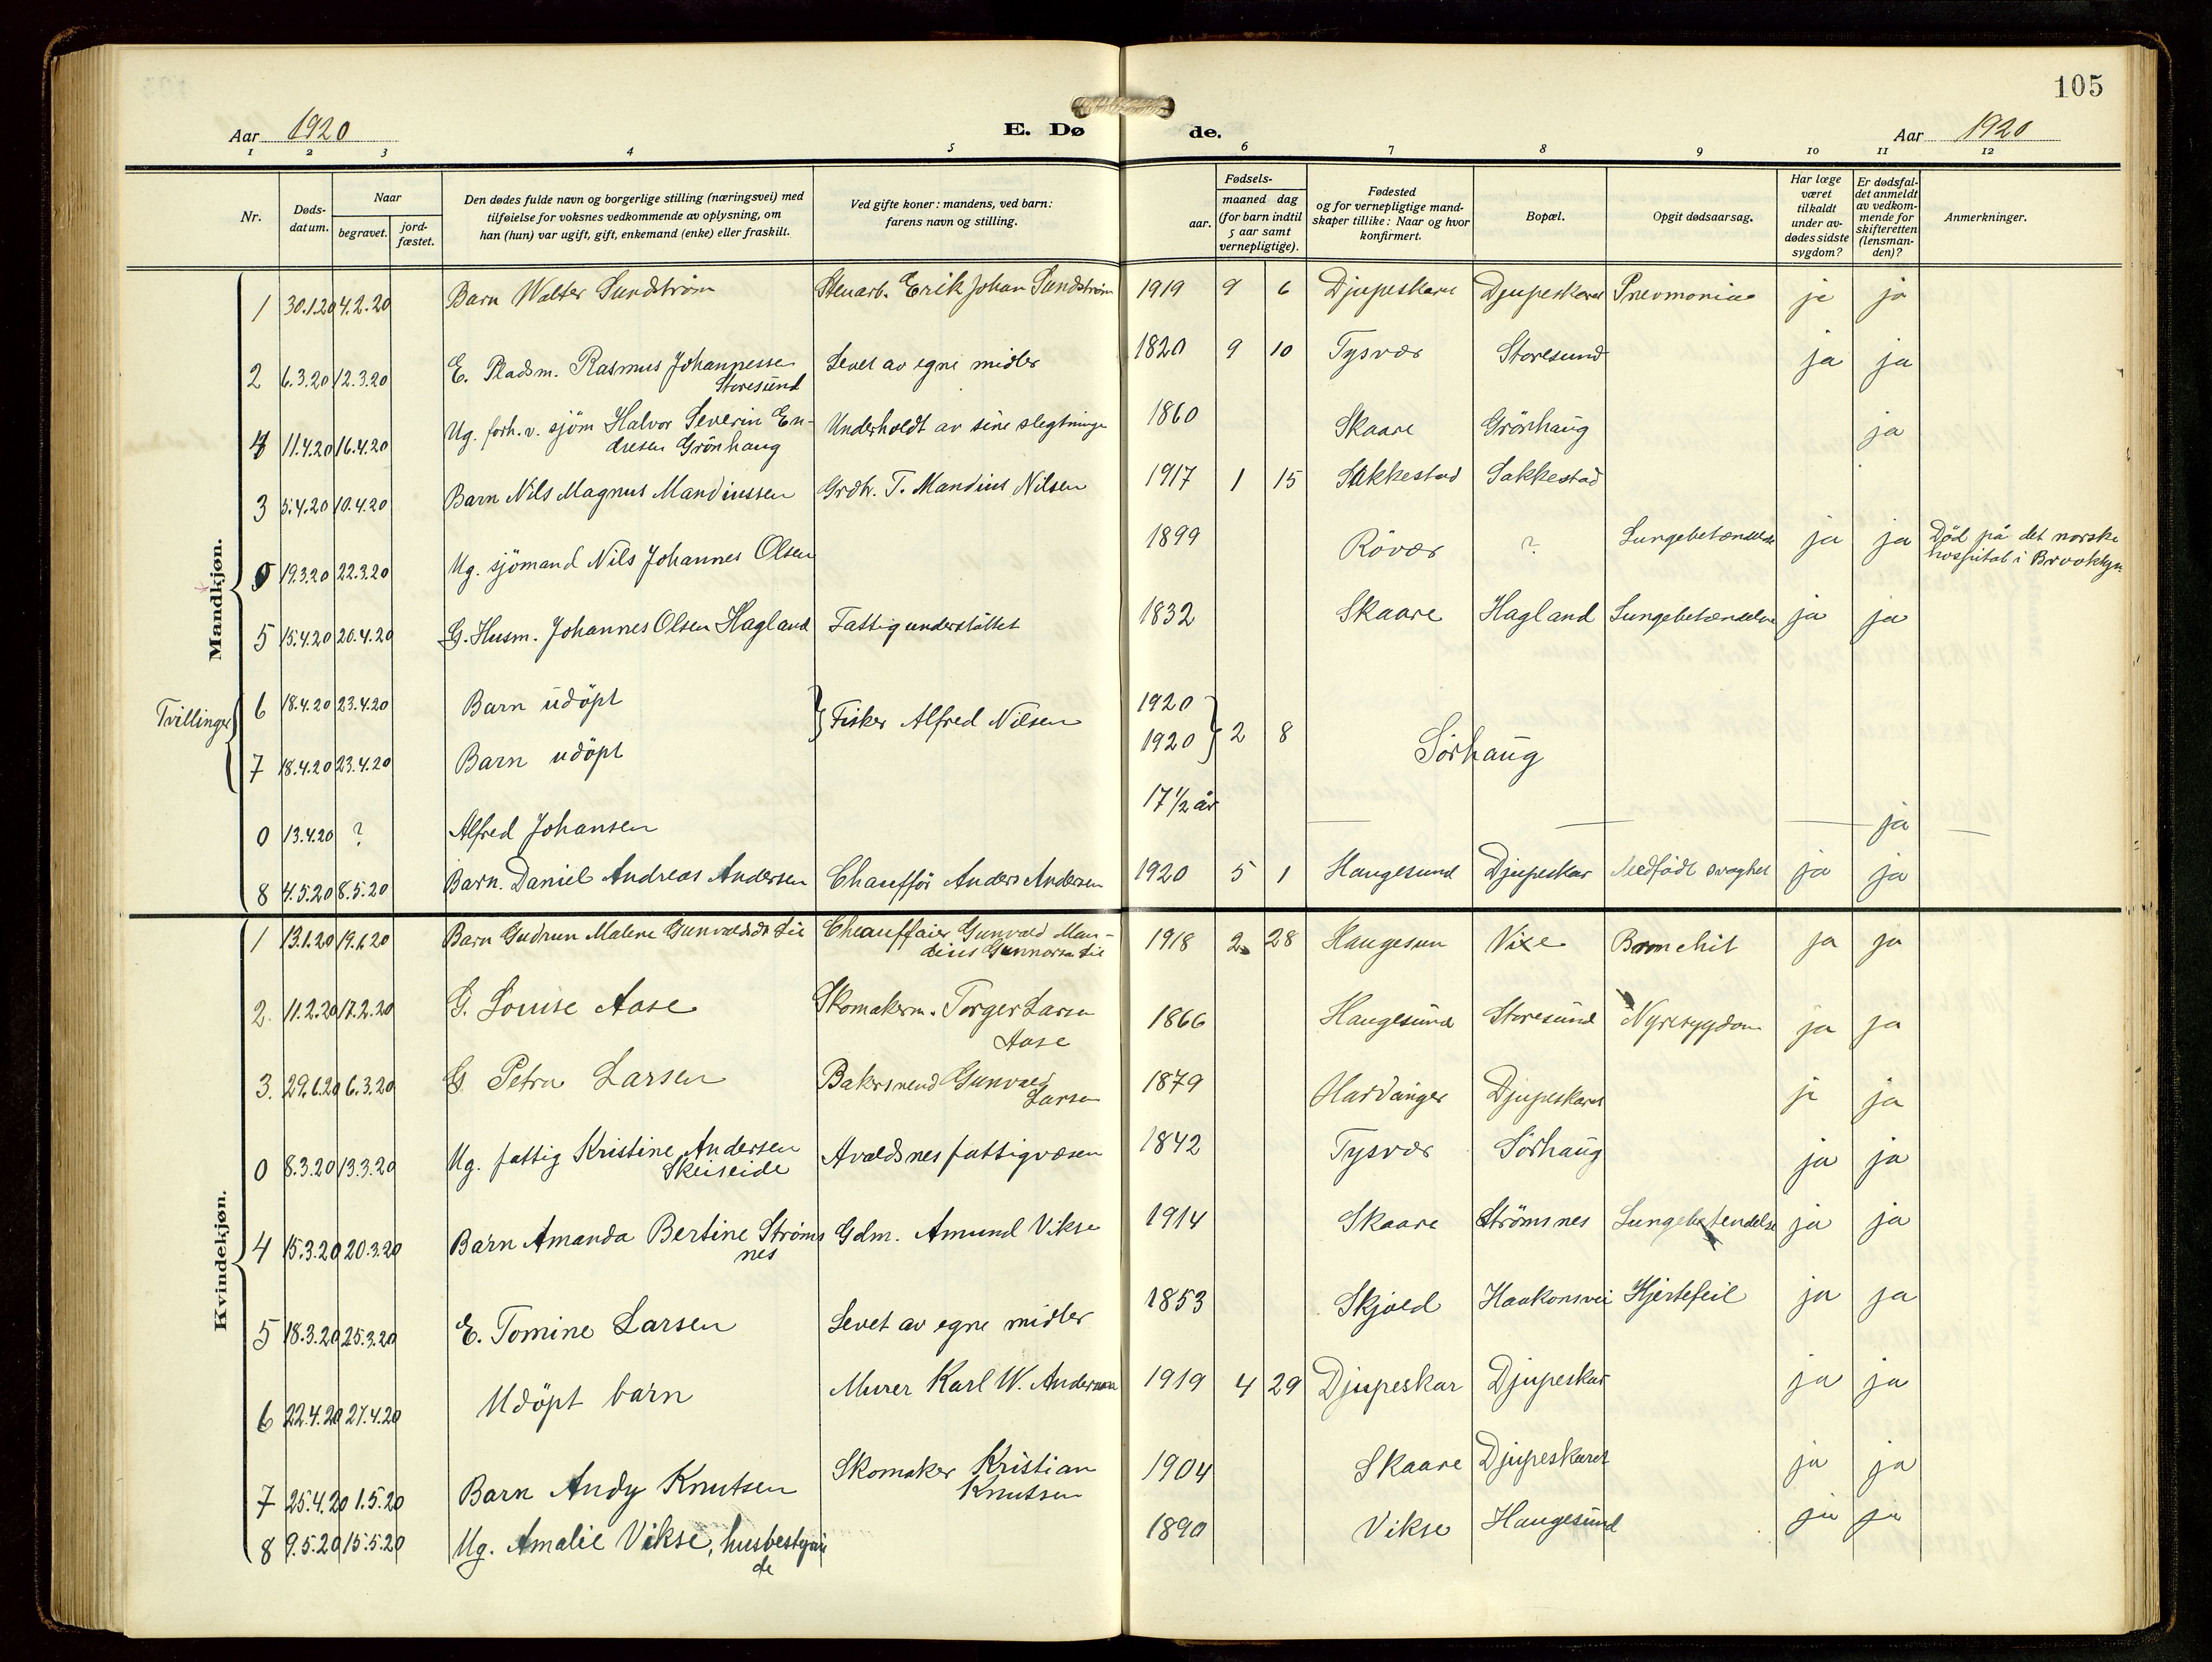 105
Aar 1920 E. Dø de. Aar 1920
1 2 3 4 5 6 7 8 9 10 11 12
Nr.
Døds-
datum.
Naar
begravet.
jord-
fæstet.
Den dødes fulde navn og borgerlige stilling (næringsvei) med
tilføielse for voksnes vedkommende av oplysning, om
han (hun) var ugift, gift, enkemand (enke) eller fraskilt.
Ved gifte koner: mandens, ved barn:
farens navn og stilling.
Fødsels-
aar.
maaned dag
(for barn indtil
5 aar samt
vernepligtige).
Fødested
og for vernepligtige mand-
skaper tillike: Naar og hvor
konfirmert.
Bopæl.
Opgit dødsaarsag.
Har læge
været
tilkaldt
under av-
dødes sidste
sygdom?
Er dødsfal-
det anmeldt
av vedkom-
mende for
skifteretten
(lensman-
den)?
Anmerkninger.
Mandkjøn.
1 30.1.20 4.2.20 Barn Walter Sundström Stenarb. Erik Johan Sundström 1919 9 6 Djupeskare Djupeskaret Pnevmoniae ja ja
2 6.3.20 12.3.20 E. Pladsm. Rasmus Johannessen Levet av egne midler 1820 9 10 Tysvær Storesund ja ja
Storesund
4 11.4.20 16.4.20 Ug. forh. v. sjöm Halvor Severin En- Underholdt av sine slegtninge 1860 Skaare Grönhaug ja
dresen Grönhaug
3 5.4.20 10.4.20 Barn Nils Magnus Mandiussen Grdbr. T. Mandius Nilsen 1917 1 15 Sakkestad Sakkestad
0 19.3.20 22.3.20 Ug. sjömand Nils Johannes Olsen 1899 Rövær ? Lungebetændelse ja ja Död på det norske
hospital i Brooklyn
5 15.4.20 20.4.20 G. Husm. Johannes Olsen Hagland Fattigunderstöttet 1832 Skaare Hagland Lungebetændelse ja ja
Tvillinger
6 18.4.20 23.4.20 Barn udöpt 1920
Fisker Alfred Nilsen 2 8 Sörhaug
7 18.4.20 23.4.20 Barn udöpt 1920
0 13.4.20 ? Alfred Johansen 17 1/2 år — — — ja —
8 4.5.20 8.5.20 Barn. Daniel Andreas Andersen Chaufför Anders Andersen 1920 5 1 Haugesund Djupeskar Medfödt svaghet ja ja
Kvindekjøn.
1 13.1.20 19.1.20 Barn Gudrun Malene Gunvaldsdt Lie Chauffør Gunvald Man- 1918 2 28 Haugesun Vixe Bronchit ja ja
dius Gunnarsen Lie
2. 11.2.20 17.2.20 G. Louise Aase Skomakerm. Torger Larsen 1866 Haugesund Storesund Nyresygdom ja ja
Aase
3. 29.6.20 6.3.20 G. Petra Larsen Bakersvend Gunvald 1879 Hardanger Djupeskaret ja ja
Larsen
0 8.3.20 13.3.20 Ug. fattig Kristine Andersen Avaldsnes fattigvæsen 1842 Tysvær Sörhaug ja ja
Skeiseide
4 15.3.20 20.3.20 Barn Amanda Bertine Ströms Gdm. Amund Vikse 1914 Skaare Strömsnes Lungebetendelse ja ja
nes
5 18.3.20 25.3.20 E. Tomine Larsen Levet av egne midler 1853 Skjold Haakonsvei Hjertefeil ja ja
6 22.4.20 27.4.20 Udöpt barn Murer Karl W. Andersen 1919 4 29 Djupeskar Djupeskar ja ja
7 25.4.20 1.5.20 Barn Andy Knutsen Skomaker Kristian 1904 Skaare Djupeskaret ja ja
Knutsen
8 9.5.20 15.5.20 Ug. Amalie Vikse, husbestyrin 1890 Vikse Haugesund ja ja
de